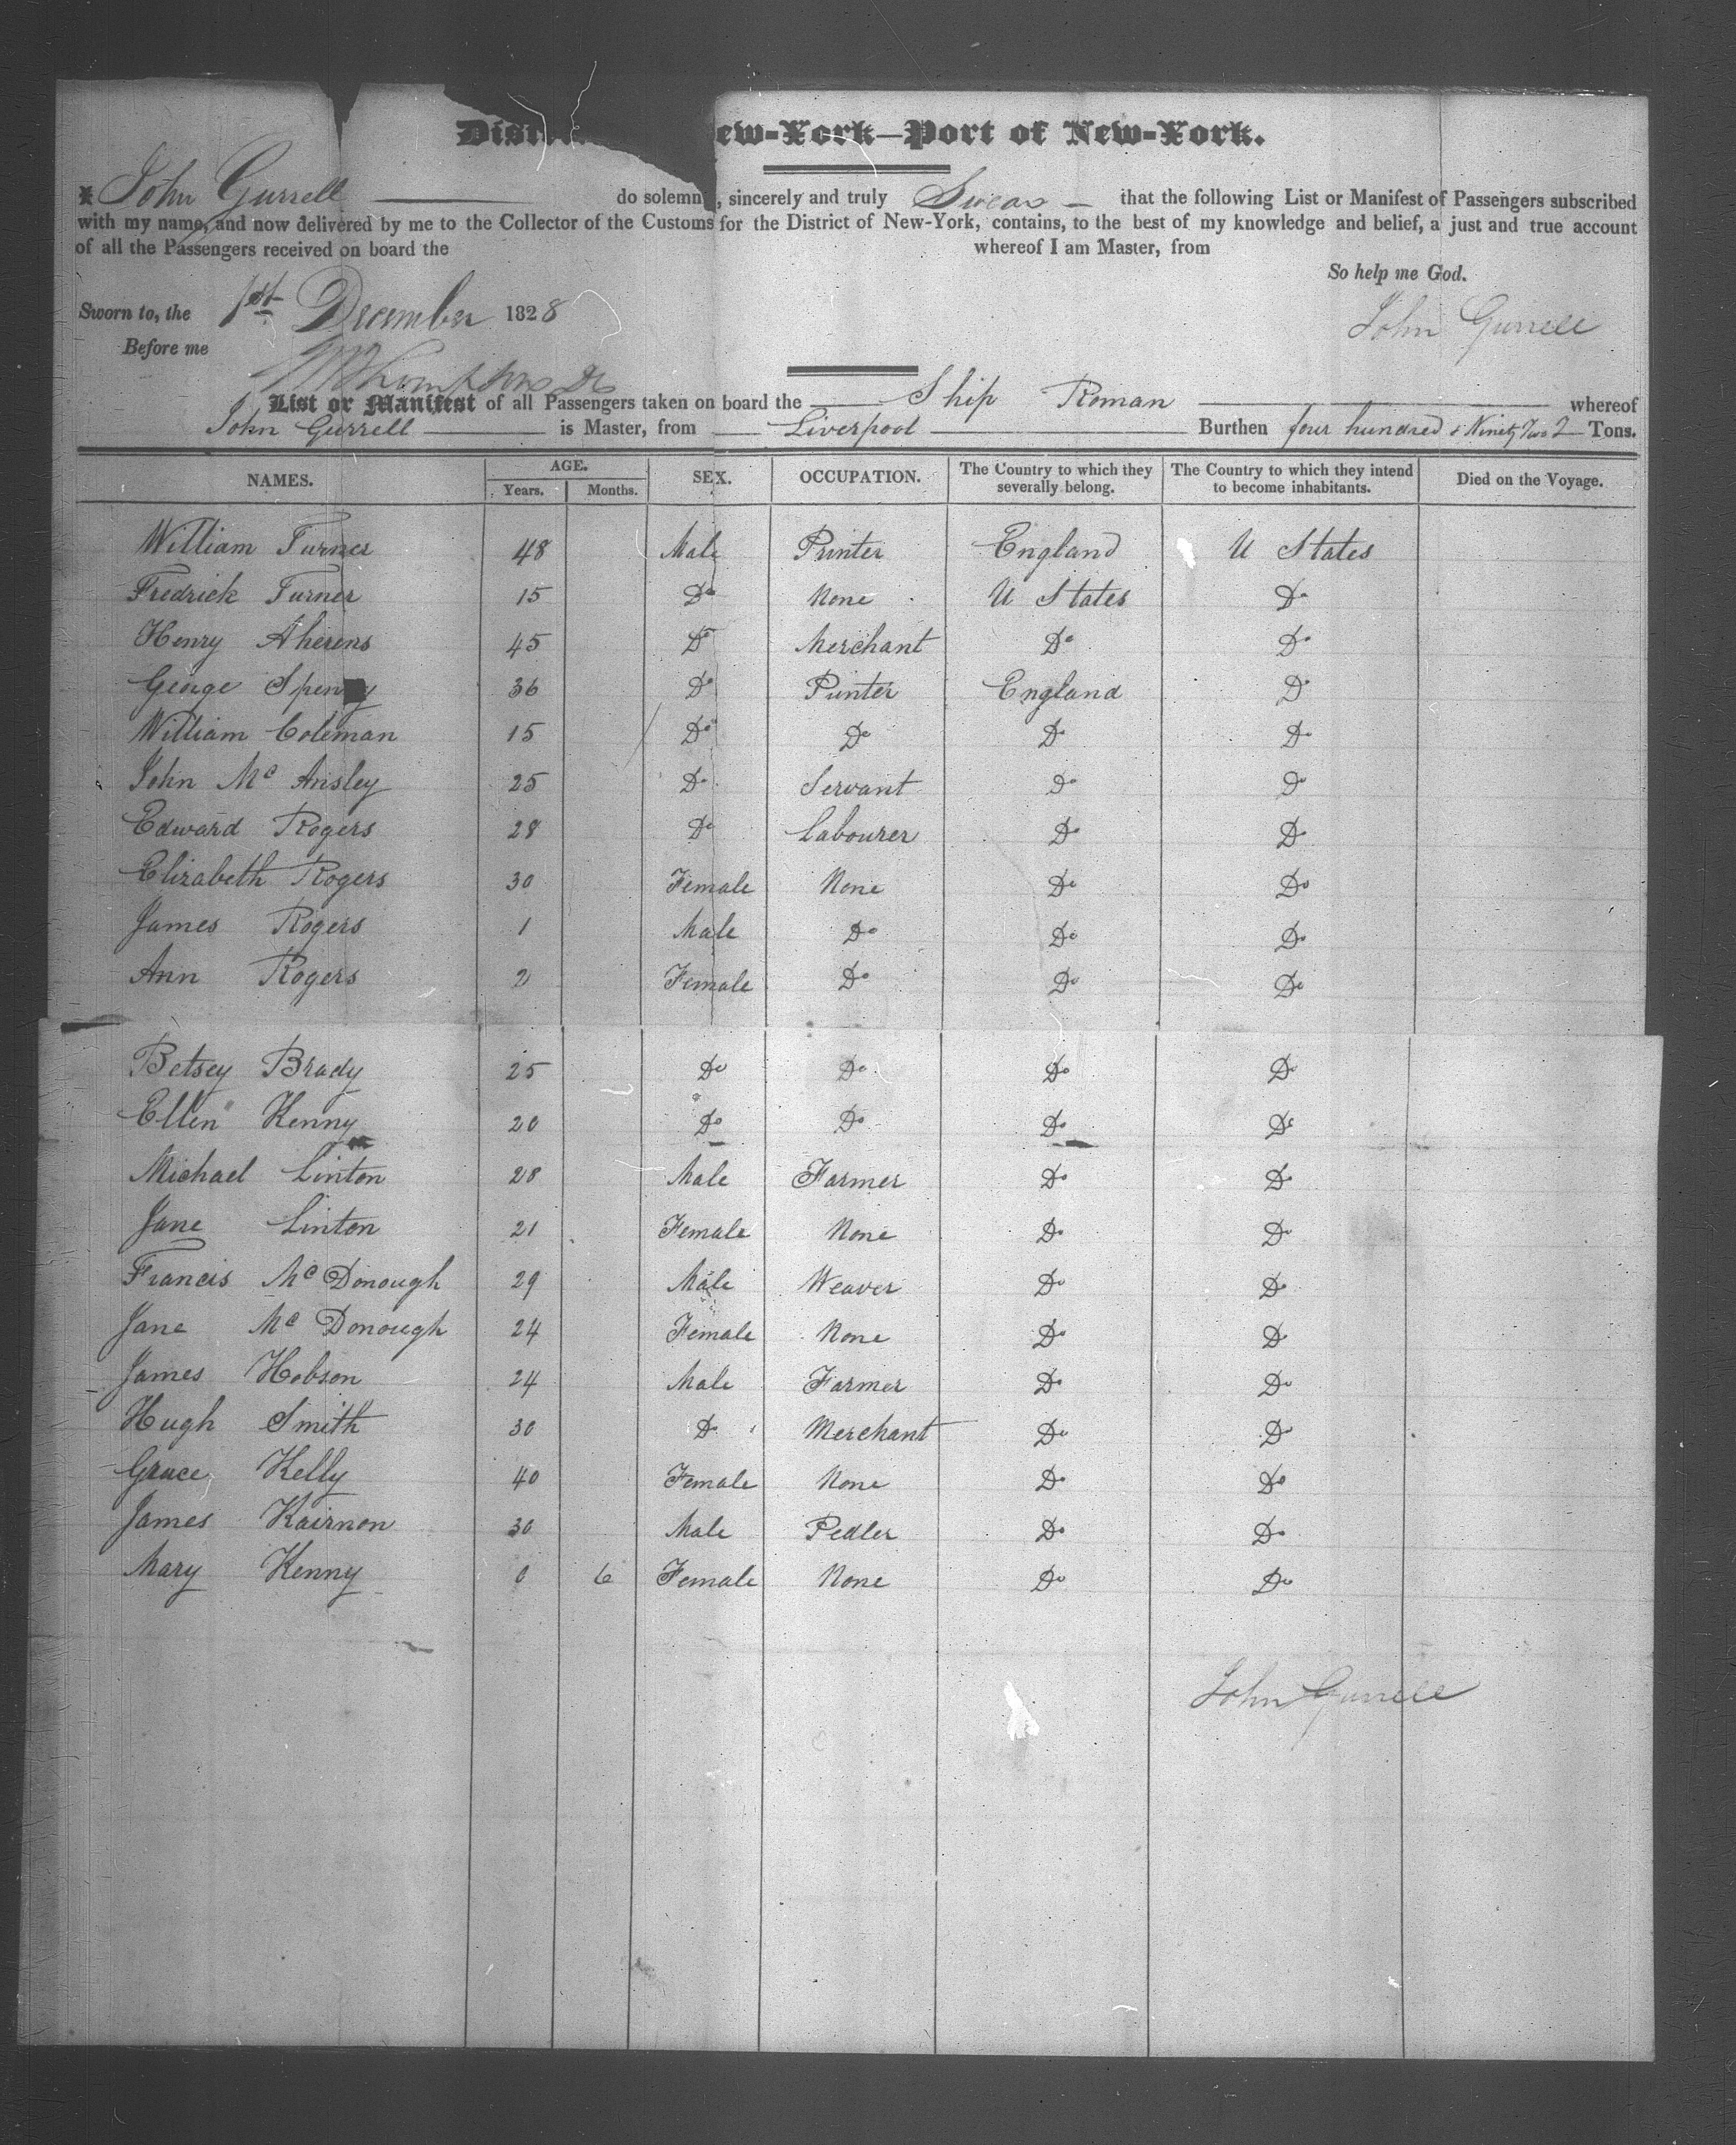 Dist ew-York—Port of New-York.
I, John Gurrell do solemn , sincerely and truly Swear that the following List or Manifest of Passengers subscribed
with my name, and now delivered by me to the Collector of the Customs for the District of New-York, contains, to the best of my knowledge and belief, a just and true account
of all the Passengers received on board the whereof I am Master, from
So help me God.
Sworn to, the 1st December 1828
John Gurrell
Before me
List or Manifest of all Passengers taken on board the Ship Roman whereof
John Gurrell is Master, from Liverpool Burthen four hundred & Ninety Two Tons.
NAMES. AGE. Years. Months. SEX. OCCUPATION. The Country to which they severally belong. The Country to which they intend to become inhabitants. Died on the Voyage.
William Turner 48 Male Printer England U States
Fredrick Turner 15 Do None U States Do
Henry Aherens 45 Do Merchant Do Do
George Spen y 36 Do Printer England Do
William Coleman 15 Do Do Do Do
John Mc Ansley 25 Do Servant Do Do
Edward Rogers 28 Do Labourer Do Do
Elizabeth Rogers 30 Female None Do Do
James Rogers 1 Male Do Do Do
Ann Rogers 2 Female Do Do Do
Betsey Brady 25 Do Do Do Do
Ellen Kenny 20 Do Do Do Do
Michael Linton 28 Male Farmer Do Do
Jane Linton 21 Female None Do Do
Francis Mc Donough 29 Male Weaver Do Do
Jane Mc Donough 24 Female None Do Do
James Hobson 24 Male Farmer Do Do
Hugh Smith 30 Do Merchant Do Do
Grace Kelly 40 Female None Do Do
James Kairnon 30 Male Pedler Do Do
Mary Kenny 0 6 Female None Do Do
John Gurrell